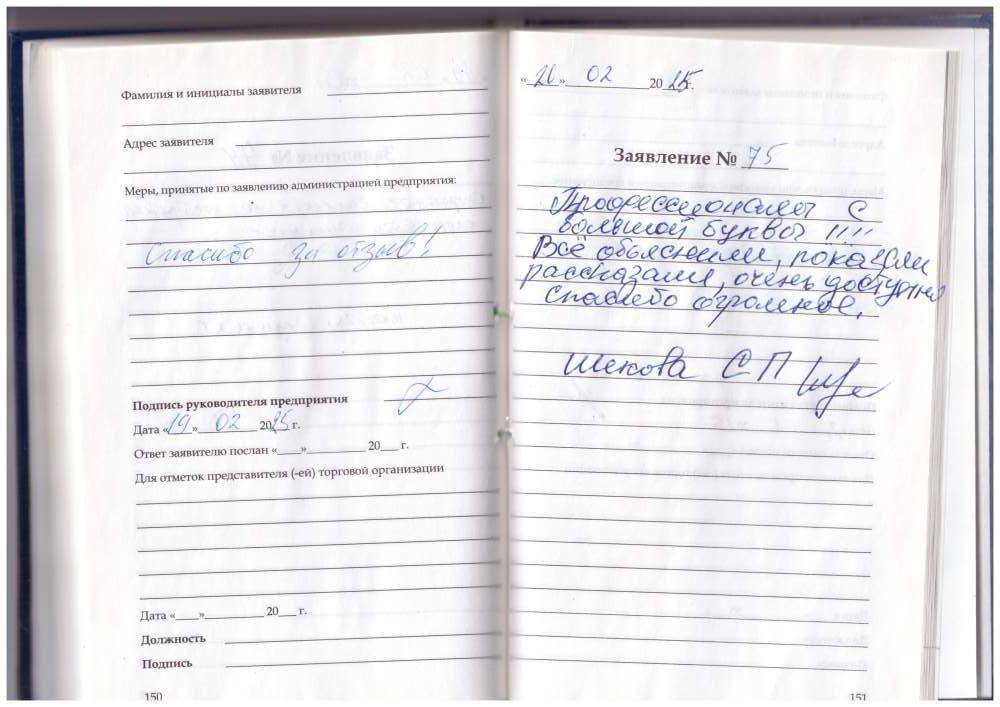 Фамилия и инициалы заявителя
Адрес заявителя
Меры, принятые по заявлению администрацией предприятия:
Спасибо за отзыв!
Подпись руководителя предприятия
Дата «19» 02 2025 г.
Ответ заявителю послан «___»__________ 20___ г.
Для отметок представителя (-ей) торговой организации
Дата «____»__________ 20___ г.
Должность
Подпись
150
«26» 02 2025г.
Заявление № 75
Профессионалы с
большой буквы !!!!
Всё объяснили, показали
рассказали, очень доступно
спасибо огромное.
Шекова С П
151